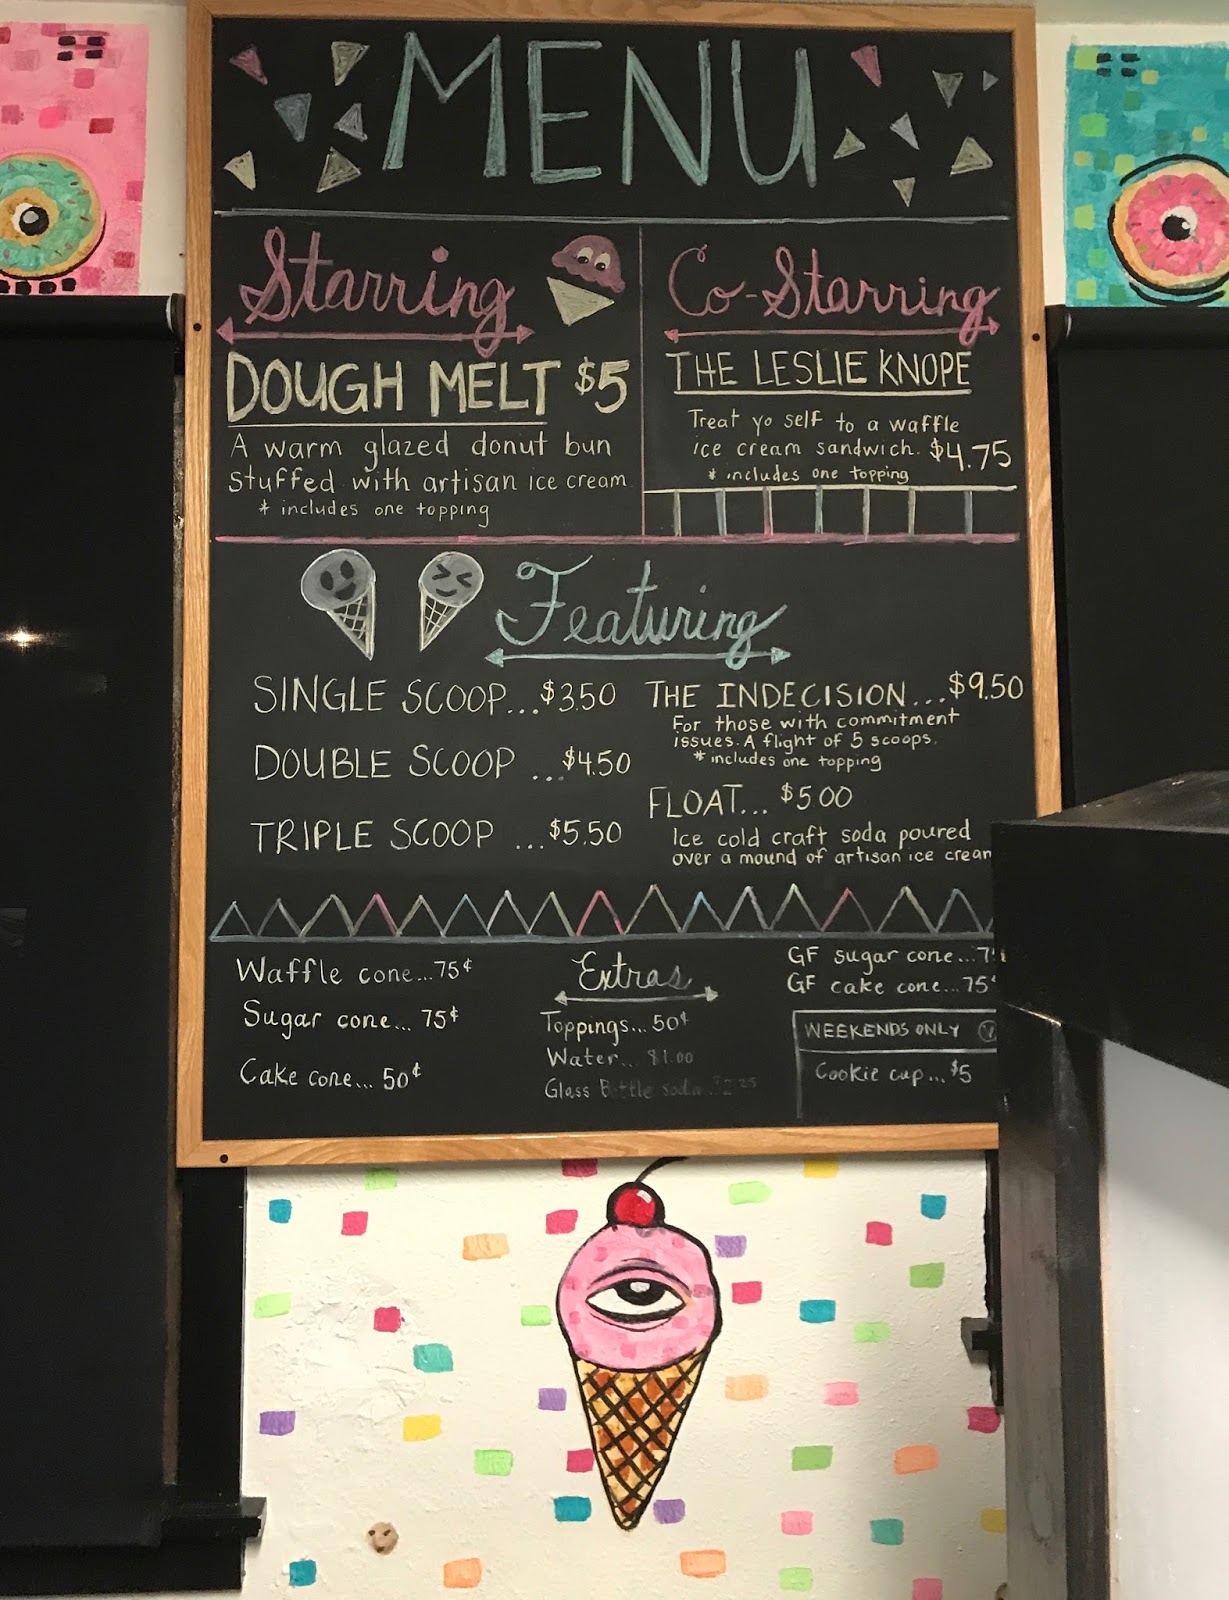 MENU
Starring
DOUGH MELT $5
A warm glazed donut bun
stuffed with artisan ice cream
* includes one topping
Co-Starring
THE LESLIE KNOPE
Treat yo self to a waffle
ice cream sandwich. $4.75
* includes one topping
Featuring
SINGLE SCOOP...$3.50
DOUBLE SCOOP ...$4.50
TRIPLE SCOOP ...$5.50
THE INDECISION...$9.50
For those with commitment
issues. A flight of 5 scoops.
* includes one topping
FLOAT... $5.00
Ice cold craft soda poured
over a mound of artisan ice cream
Waffle cone...75¢
Sugar cone... 75¢
Cake cone... 50¢
Extras
Toppings... 50¢
Water... $1.00
Glass Bottle soda...$2.25
GF sugar cone...75
GF cake cone...75¢
WEEKENDS ONLY
Cookie cup...$5